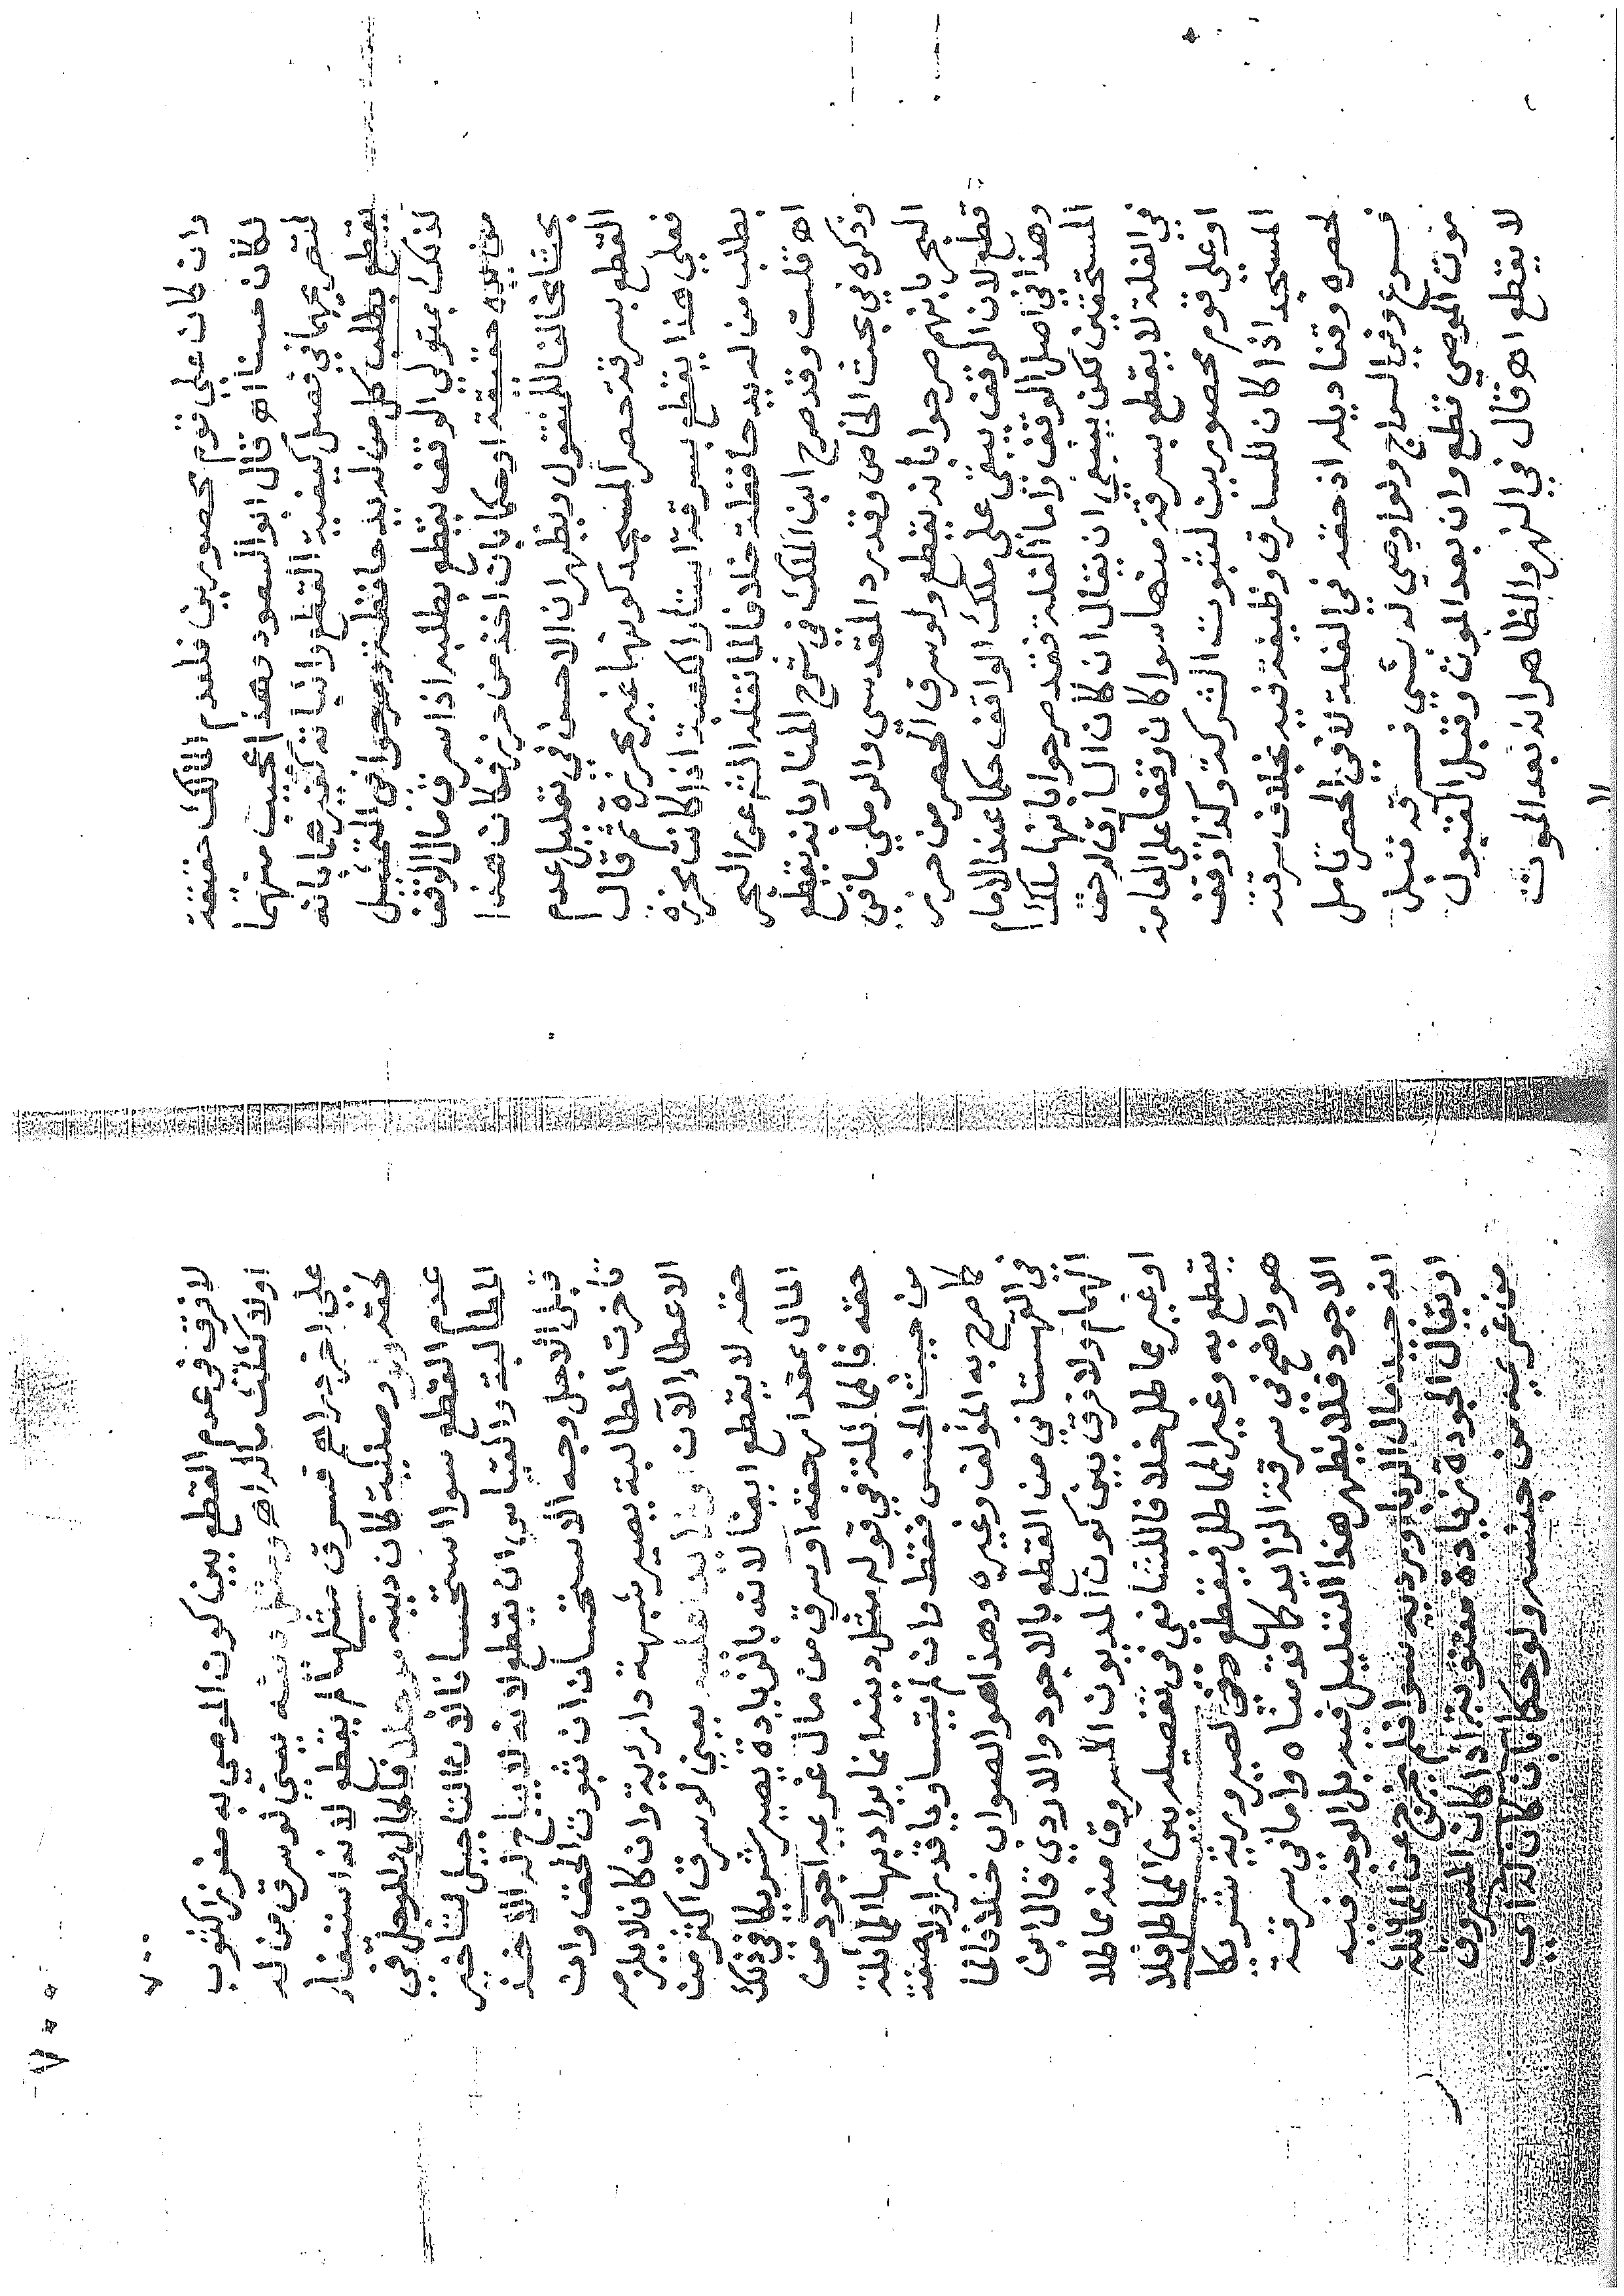 وان كان على قوم محصورين فلعدم المالك حقيقة
لكان حسنا اهـ قال ابو السعود وهذا عجيب منهما
لتصريحهما في فصل كيفية القطع واثباته كغيرهما بانه
يقطع بطلب كل من له يد حافظة وصرحوا في التمثيل
لذلك بمتولي الوقف يقطع بطلبه اذا سرق مال الوقف
من يده حقيقة او حكما بان اخذ من حرز فكان هذا
بحثا مخالفا للمنقول ويظهر ان الاحسن في تعليل عدم
القطع بسرقة حصر المسجد كونها غير محرزة ثم قال
فعلى هذا يقطع بسرقة استار الكعبة اذا كانت محرزة
بطلب من له يد حافظة خلافا لما نقله الشرع عن البحر
اهـ قلت وقد صرح ابن الملك في شرح المنار بانه يقطع
وذكره في بحث الخاص وقد رد المقدسي والرملي ما في
البحر بانهم صرحوا بأنه يقطع ولو سرق الحصر من حرز
قطع لان الوقف يبقى على ملك الواقف حكما عند الامام
وهذا في اصل الوقف واما الغلة فقد صرحوا بانها ملك
المستحقين لكن ينبغي ان يقال ان كان السارق له حق
في الغلة لا يقطع بسرقته منها سواء كان وقفا على العامة
او على قوم محصورين لثبوت الشركة وكذا وقف
المسجد اذا كان للسارق وظيفة فيه بخلاف سرقة
حصره وقناديله اذ حقه في الغلة لا في الحصر تامل
فرع وفي السراج ولو اوصى له بشي فسرقه قبل
موت الموصي قطع وان بعد الموت وقبل القبول
لا يقطع اهـ قال في النهر والظاهر انه بعد الموت
لا
لا فرق في عدم القطع بين كون الموصى به محرزا كثوب
اولا كثلث ماله اهـ ومثل دينه يعني لو سرق من له
على اخر دراهم فسرق مثلها لم يقطع لانه استيفاء
لحقه ولو وصلية كان دينه مؤجلا فالحال والمؤجل في
عدم القطع سواء استحسانا لان التاجيل لتاخير
المطالبة والقياس ان يقطع لانه لا يباح له الاخذ
قبل الاجل وجه الاستحسان ان ثبوت الحق وان
تأخرت المطالبة يصير شبهة دارئة وان كان لا يلزمه
الاعطاء الآن وزايدا عليه يعني لو سرق اكثر من
حقه لا يقطع ايضا لانه بالزيادة يصير شريكا في ذلك
المال بمقدار حقه او سرق من مال غريمه اجود من
حقه فالمماثلة في قوله مثل دينه انما يراد بها المماثلة
من حيث الجنس فقط وان لم يتساويا قدرا ولا صفة
كما صرح به المؤلف وغيره وهذا هو الصواب خلافا لما
في القهستاني من القطع بالاجود والاردي قال ابن
الهمام ولا فرق بين كون المديون المسروق منه مماطلا
او غير مماطل خلافا للشافعي في تفصيله بين المماطل فلا
يقطع به وغير المماطل فيقطع وفي لصيرورته شريكا
هو واضح في سرقة الزايد كما قدمناه واما في سرقة
الاجود فلا يظهر هذا التعليل فيه بل الوجه فيه
انه جيد مال الربا ورديه سواء فلم يخرج عن المماثلة
او يقال الجودة زيادة معنوية اذا كان المسروق
من غريمه من جنسه ولو حكما بان كان له اي